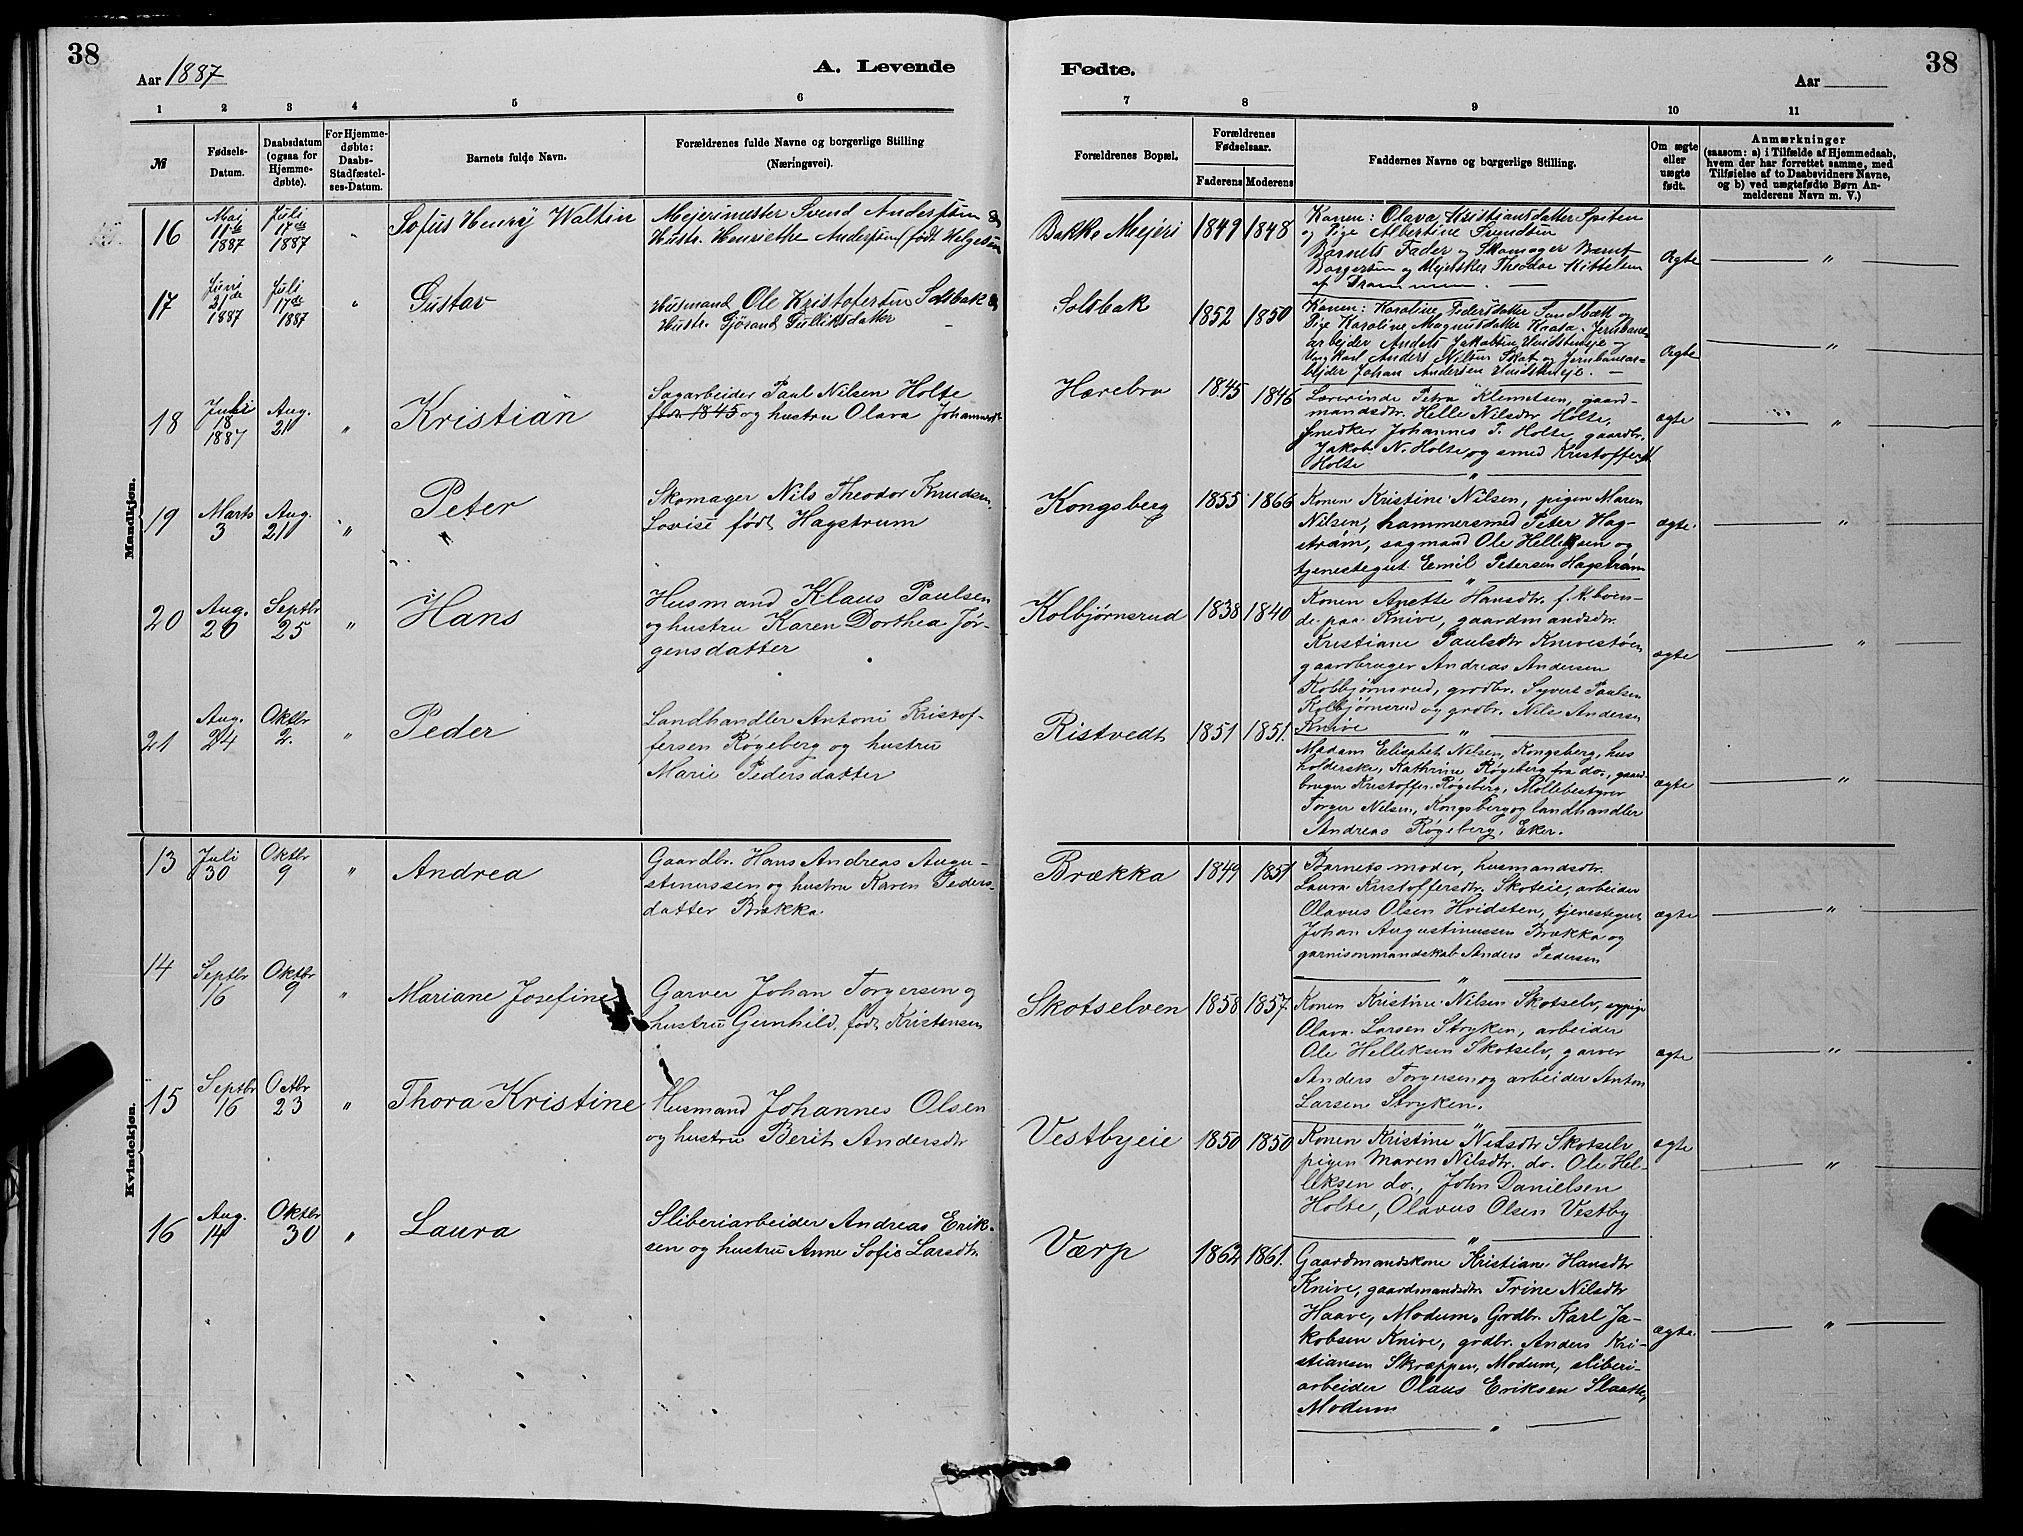 38
Aar 1887
A. Levende
1 2 3 4 5 6
№
Fødsels-
Datum.
Daabsdatum
(ogsaa for
Hjemme-
døbte).
For Hjemme-
døbte:
Daabs-
Stadfæstel-
ses-Datum.
Barnets fulde Navn.
Forældrenes fulde Navne og borgerlige Stilling
(Næringsvei).
Mandkjøn.
16
Mai
11te
1887
Juli
17de
1887
"
Sofus Henry Waltin
Mejerimester Svend Anderssen &
Hustr. Henriethe Anderssen født Helgesen
17
Juni
21de
1887
Juli
17de
1887
"
Gustav
Husmand Ole Kristofersen Solsbak &
Hustr. Gjörand Gulliksdatter
18
Juli
18
1887
Aug.
21
"
Kristian
Sagarbeider Paul Nilsen Holte
født 1845 og hustru Olava Johannesdtr.
19
Marts
3
Aug.
21
"
Peter
Skomager Nils Theodor Knudsen,
Lovise født Hagstrum
20
Aug.
26
Septbr
25
"
Hans
Husmand Klaus Paulsen
og hustru Karen Dorthea Jør-
gensdatter
21
Aug.
24
Oktbr
2.
"
Peder
Landhandler Antoni Kristof-
fersen Røgeberg og hustru
Marie Pedersdatter
Kvindekjøn.
13
Juli
30
Oktbr
9
"
Andrea
Gaardbr. Hans Andreas Augu-
stinussen og hustru Karen Peders-
datter Brækka.
14
Septbr
16
Oktbr
9
"
Mariane Josefine
Garver Johan Torgersen og
hustru Gunhild, født Kristensen
15
Septbr
16
Octbr
23
"
Thora Kristine
Husmand Johannes Olsen
og hustru Berit Andersdtr
16
Aug.
14
Oktbr
30
"
Laura
Sliberiarbeider Andreas Erik-
sen og hustru Anne Sofie Larsdtr.
38
Fødte.
Aar
7 8 9 10 11
Forældrenes Bopæl.
Forældrenes
Fødselsaar.
Faderens Moderens
Faddernes Navne og borgerlige Stilling.
Om ægte
eller
uægte
født.
Anmærkninger
(saasom: a) i Tilfælde af Hjemmedaab,
hvem der har forrettet samme, med
Tilføielse af to Daabsvidners Navne,
og b) ved uægtefødte Børn An-
melderens Navn m. V.)
Bakke Mejeri 1849 1848
Konen: Olava Kristiansdatter Speten
og Pige Albertine Svendsen
Barnets Fader og Skomager Bernt
Borgersen og Mejerske Theodor Kittelsen
af Drammen.
Ægte "
Solsbak 1852 1850
Konen: Karoline Pedersdatter Sandbæk og
Pige Karoline Magnusdatter Kaasa. Jernbane-
arbejder Anders Jakobsen Hvidsteneje og
Ungkarl Anders Nilsen Skot og Jernbanear-
bejder Johan Andersen Hvidsteneje.
Ægte "
Hærebro 1845 1846
Lærerinde Petra Klemetsen, gaard-
mandsdtr. Helle Nilsdtr Holte,
snedker Johannes P. Holte, gaardbr.
Jakob N. Holte og smed Kristoffer N
Holte
ægte "
Kongsberg 1855 1866
Konen Kristine Nilsen, pigen Maren
Nilsen, hammersmed Peter Hag-
strøm, sagmand Ole Helleksen og
tjenestegut Emil Petersen Hagstrøm
ægte "
Kolbjørnsrud 1838 1840
Konen Anette Hansdtr. f. K. boen-
de paa Knive, gaardmandsdtr.
Kristiane Paulsdtr Knivestøen
gaardbruger Andreas Andersen
Kolbjørnsrud, grdbr. Syvert Paulsen
Kolbjørnsrud og grdbr. Nils Andersen
Knive
ægte "
Ristvedt 1851 1851.
Madam Elisabet Nilsen, Kongsberg, hus
holderske, Kathrine Røgeberg fra do., gaard-
bruger Kristoffer Røgeberg, Møllebestyrer
Torger Nilsen, Kongsberg og landhandler
Andreas Røgeberg, Eker.
ægte "
Brækka 1849 1851
Barnets moder, husmandsdtr.
Laura Kristoffersdtr. Skoteie, arbeider
Olavus Olsen Hvidsten, tjenestegut
Johan Augustinussen Brækka og
garnisonmandskab Anders Pedersen
ægte "
Skotselven 1858 1857.
Konen Kristine Nilsen Skotselv, sypige
Olava Larsen Stryken, arbeider
Ole Helleksen Skotselv, garver
Anders Torgersen og arbeider Anton
Larsen Stryken.
ægte "
Vestbyeie 1850 1850
Konen Kristine Nilsdtr Skotselv
pigen Maren Nilsdtr. do. Ole Hel-
leksen do., John Danielsen
Holte, Olavus Olsen Vestby
ægte "
Værp 1862 1861.
Gaardmandskone Kristiane Hansdtr
Knive, gaardmandsdtr. Trine Nilsdtr
Haave, Modum. Grdbr. Karl Ja-
kobsen Knive, grdbr. Anders Kri-
stiansen Skræppen, Modum, sliberi-
arbeider Olaus Eriksen Slaatte,
Modum
ægte "